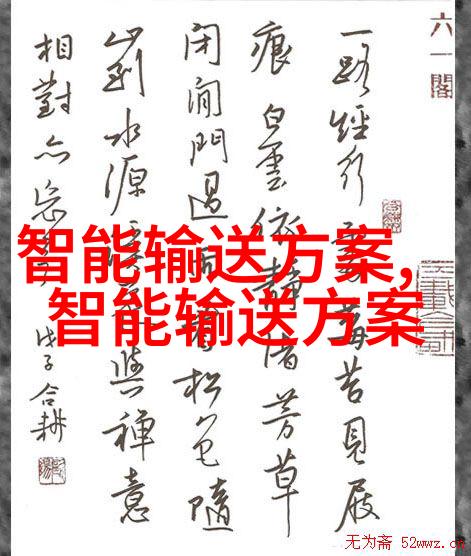 六一閣
一路經行處莓苔見屐
痕白雲依靜渚芳草
閉閒門過雨看松色隨
山到水源與禪意
相對亦忘
戊子合耕
智能输送方案,
智能输送方案
无为斋 52wwz.c